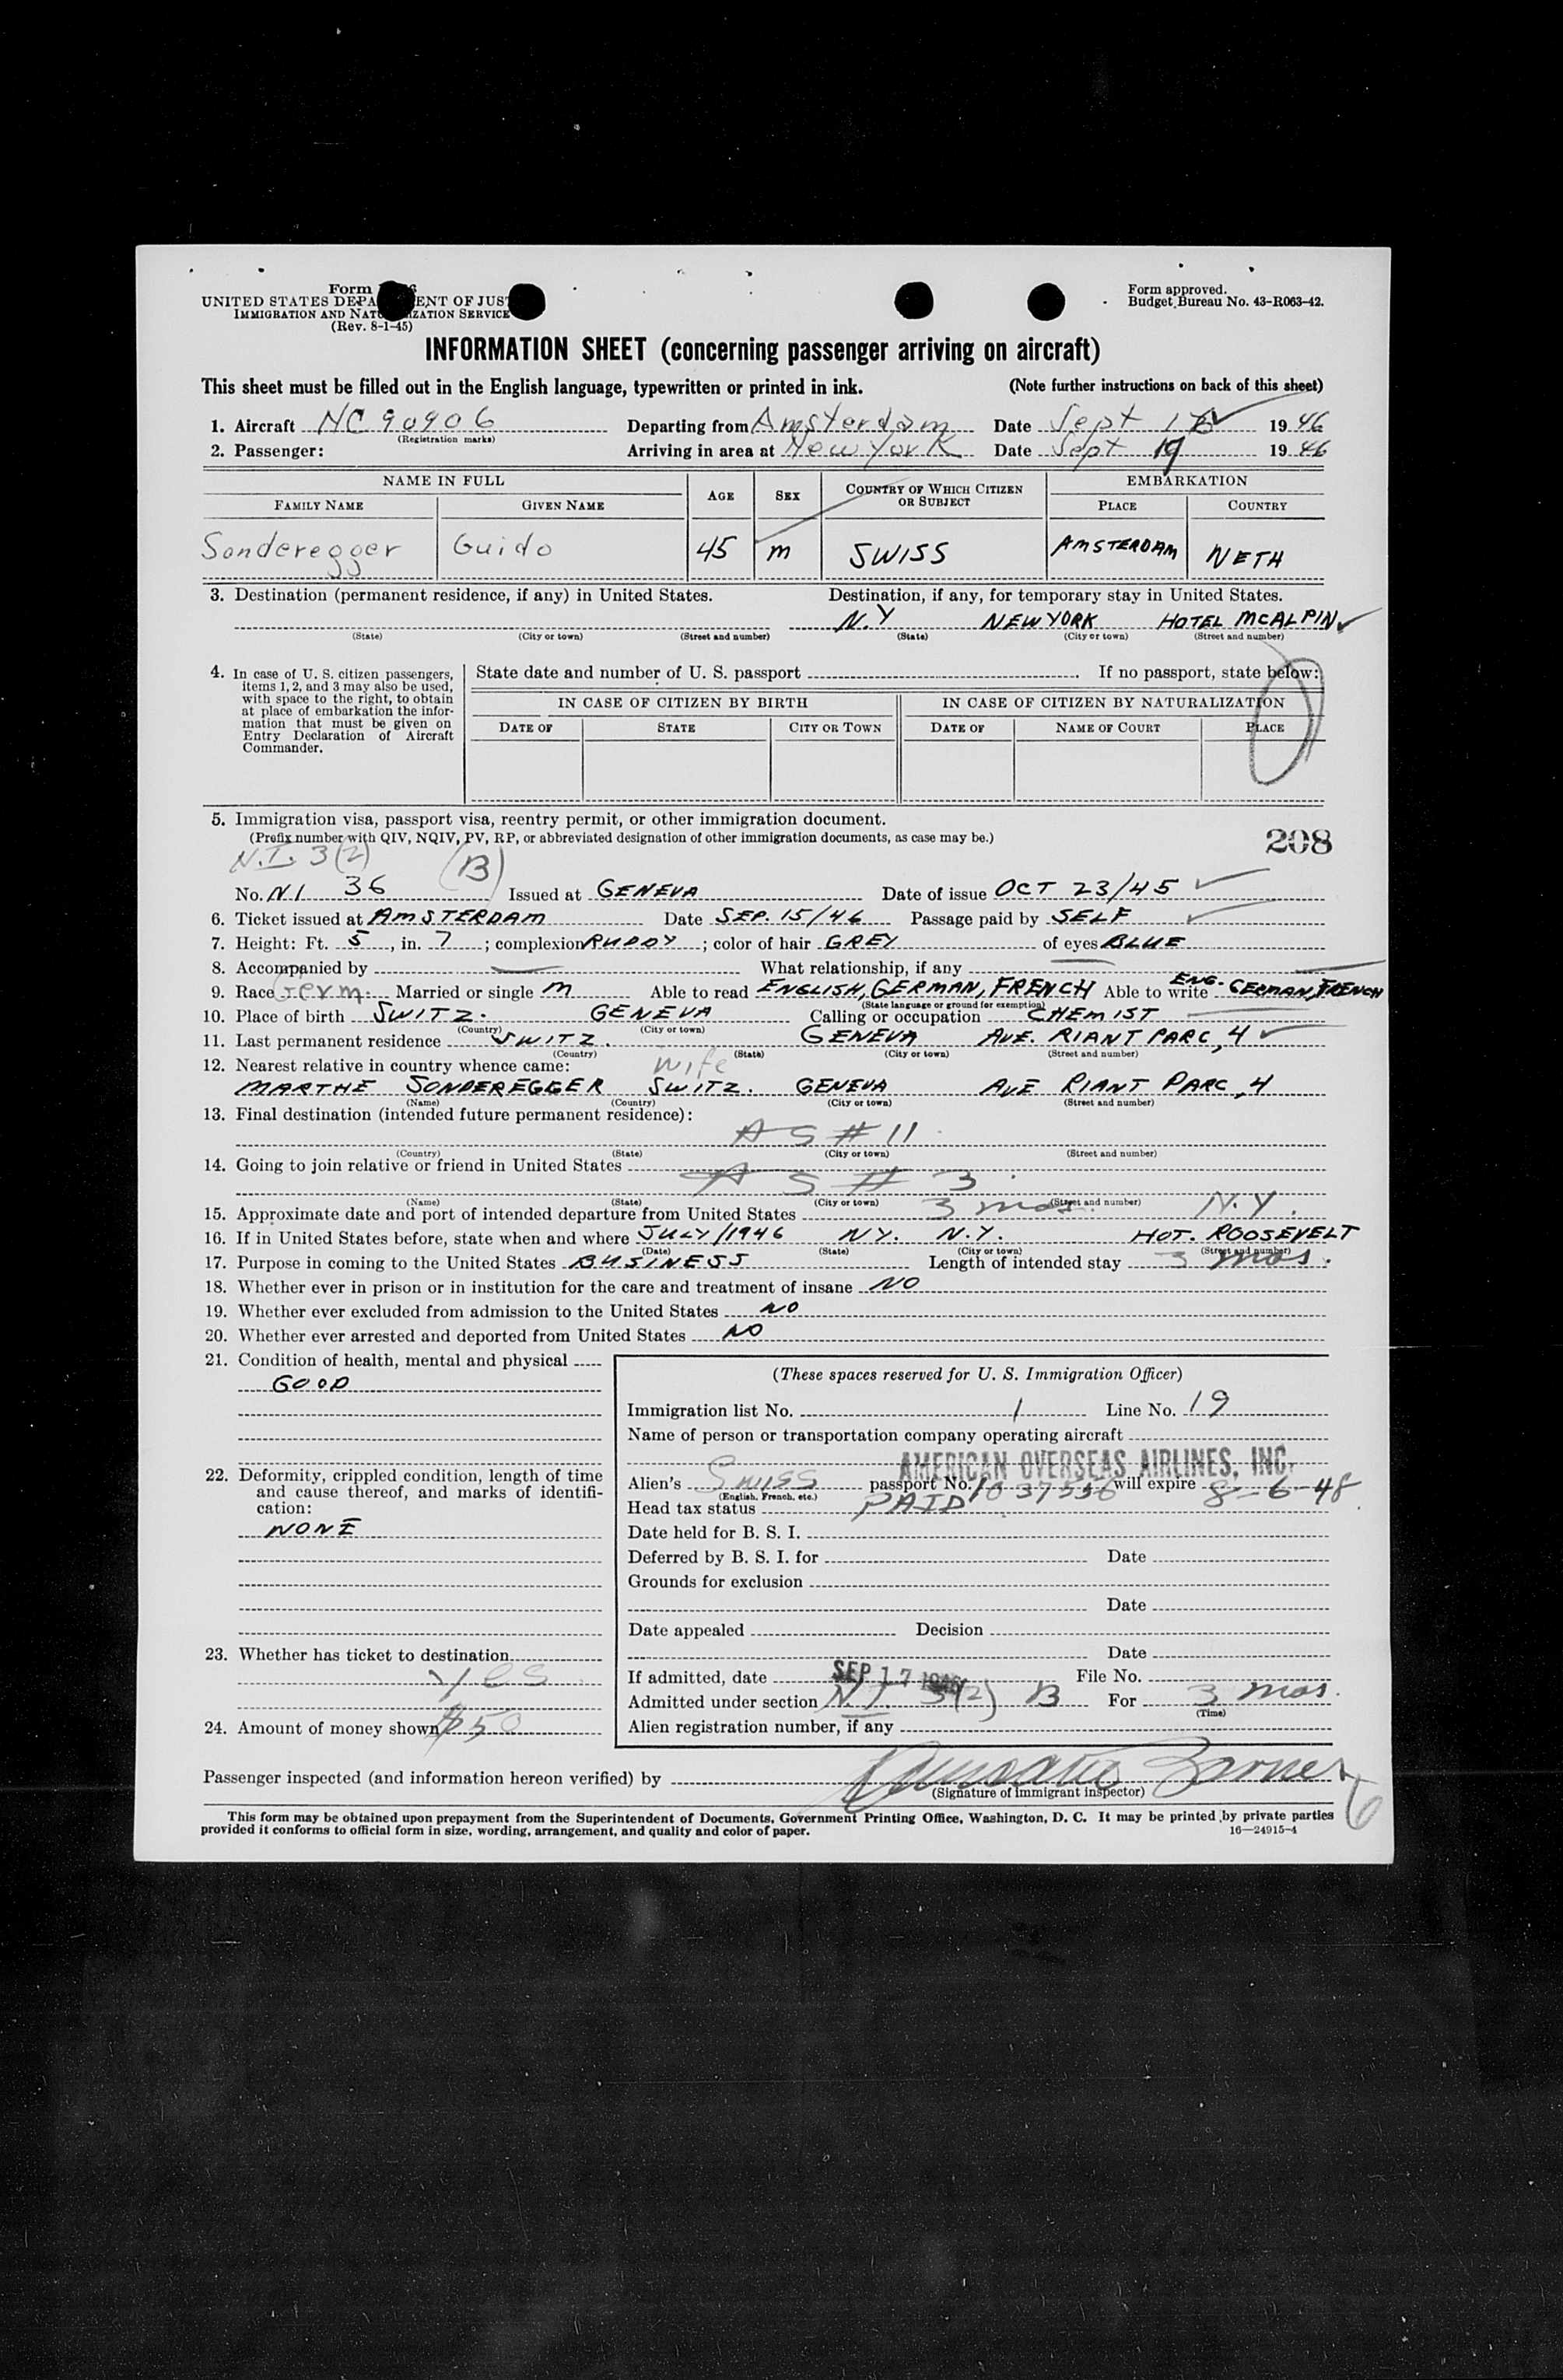 Form
UNITED STATES DEPA ENT OF JUS
IMMIGRATION AND NAT IZATION SERVICE
(Rev. 8-1-45)
Form approved.
Budget Bureau No. 43-R063-42.
INFORMATION SHEET (concerning passenger arriving on aircraft)
This sheet must be filled out in the English language, typewritten or printed in ink. (Note further instructions on back of this sheet)
1. Aircraft NC 90906 Departing from Amsterdam Date Sept 1946
(Registration marks)
2. Passenger: Arriving in area at New York Date Sept 1946
NAME IN FULL AGE SEX COUNTRY OF WHICH CITIZEN OR SUBJECT EMBARKATION
FAMILY NAME GIVEN NAME PLACE COUNTRY
Sonderegger Guido 45 M SWISS AMSTERDAM NETH
3. Destination (permanent residence, if any) in United States. Destination, if any, for temporary stay in United States.
N.Y NEW YORK HOTEL MCALPIN
(State) (City or town) (Street and number) (State) (City or town) (Street and number)
4. In case of U. S. citizen passengers, items 1, 2, and 3 may also be used, with space to the right, to obtain at place of embarkation the information that must be given on Entry Declaration of Aircraft Commander.
State date and number of U. S. passport If no passport, state below:
IN CASE OF CITIZEN BY BIRTH IN CASE OF CITIZEN BY NATURALIZATION
DATE OF STATE CITY OR TOWN DATE OF NAME OF COURT PLACE
5. Immigration visa, passport visa, reentry permit, or other immigration document.
(Prefix number with QIV, NQIV, PV, RP, or abbreviated designation of other immigration documents, as case may be.)
208
N.I. 3(2) (B)
No. NI 36 Issued at GENEVA Date of issue OCT 23/45
6. Ticket issued at AMSTERDAM Date SEP. 15/46 Passage paid by SELF
7. Height: Ft. 5, in. 7; complexion RUDDY; color of hair GREY of eyes BLUE
8. Accompanied by — What relationship, if any —
9. Race Germ. Married or single M Able to read ENGLISH, GERMAN, FRENCH Able to write ENG. GERMAN, FRENCH
(State language or ground for exemption)
10. Place of birth SWITZ. GENEVA Calling or occupation CHEMIST
(Country) (City or town)
11. Last permanent residence SWITZ. GENEVA AVE. RIANT PARC, 4
(Country) (State) (City or town) (Street and number)
12. Nearest relative in country whence came: wife
MARTHE SONDEREGGER SWITZ. GENEVA AVE RIANT PARC, 4
(Name) (Country) (City or town) (Street and number)
13. Final destination (intended future permanent residence):
AS # 11
(Country) (State) (City or town) (Street and number)
14. Going to join relative or friend in United States
AS # 3
(Name) (State) (City or town) (Street and number)
15. Approximate date and port of intended departure from United States 3 mos. N.Y.
16. If in United States before, state when and where JULY/1946 NY. N.Y. HOT. ROOSEVELT
(Date) (State) (City or town) (Street and number)
17. Purpose in coming to the United States BUSINESS Length of intended stay 3 mos.
18. Whether ever in prison or in institution for the care and treatment of insane NO
19. Whether ever excluded from admission to the United States NO
20. Whether ever arrested and deported from United States NO
21. Condition of health, mental and physical
GOOD
22. Deformity, crippled condition, length of time and cause thereof, and marks of identification:
NONE
23. Whether has ticket to destination
yes
24. Amount of money shown $50
(These spaces reserved for U. S. Immigration Officer)
Immigration list No. 1 Line No. 19
Name of person or transportation company operating aircraft
AMERICAN OVERSEAS AIRLINES, INC.
Alien's Swiss passport No. will expire 8-6-48
(English, French, etc.)
Head tax status PAID
Date held for B. S. I.
Deferred by B. S. I. for Date
Grounds for exclusion
Date
Date appealed Decision
Date
If admitted, date SEP 17 1946 File No.
Admitted under section N.I. 3(2) B For 3 mos.
(Time)
Alien registration number, if any
Passenger inspected (and information hereon verified) by
(Signature of immigrant inspector)
This form may be obtained upon prepayment from the Superintendent of Documents, Government Printing Office, Washington, D. C. It may be printed by private parties
provided it conforms to official form in size, wording, arrangement, and quality and color of paper. 16—24915-4